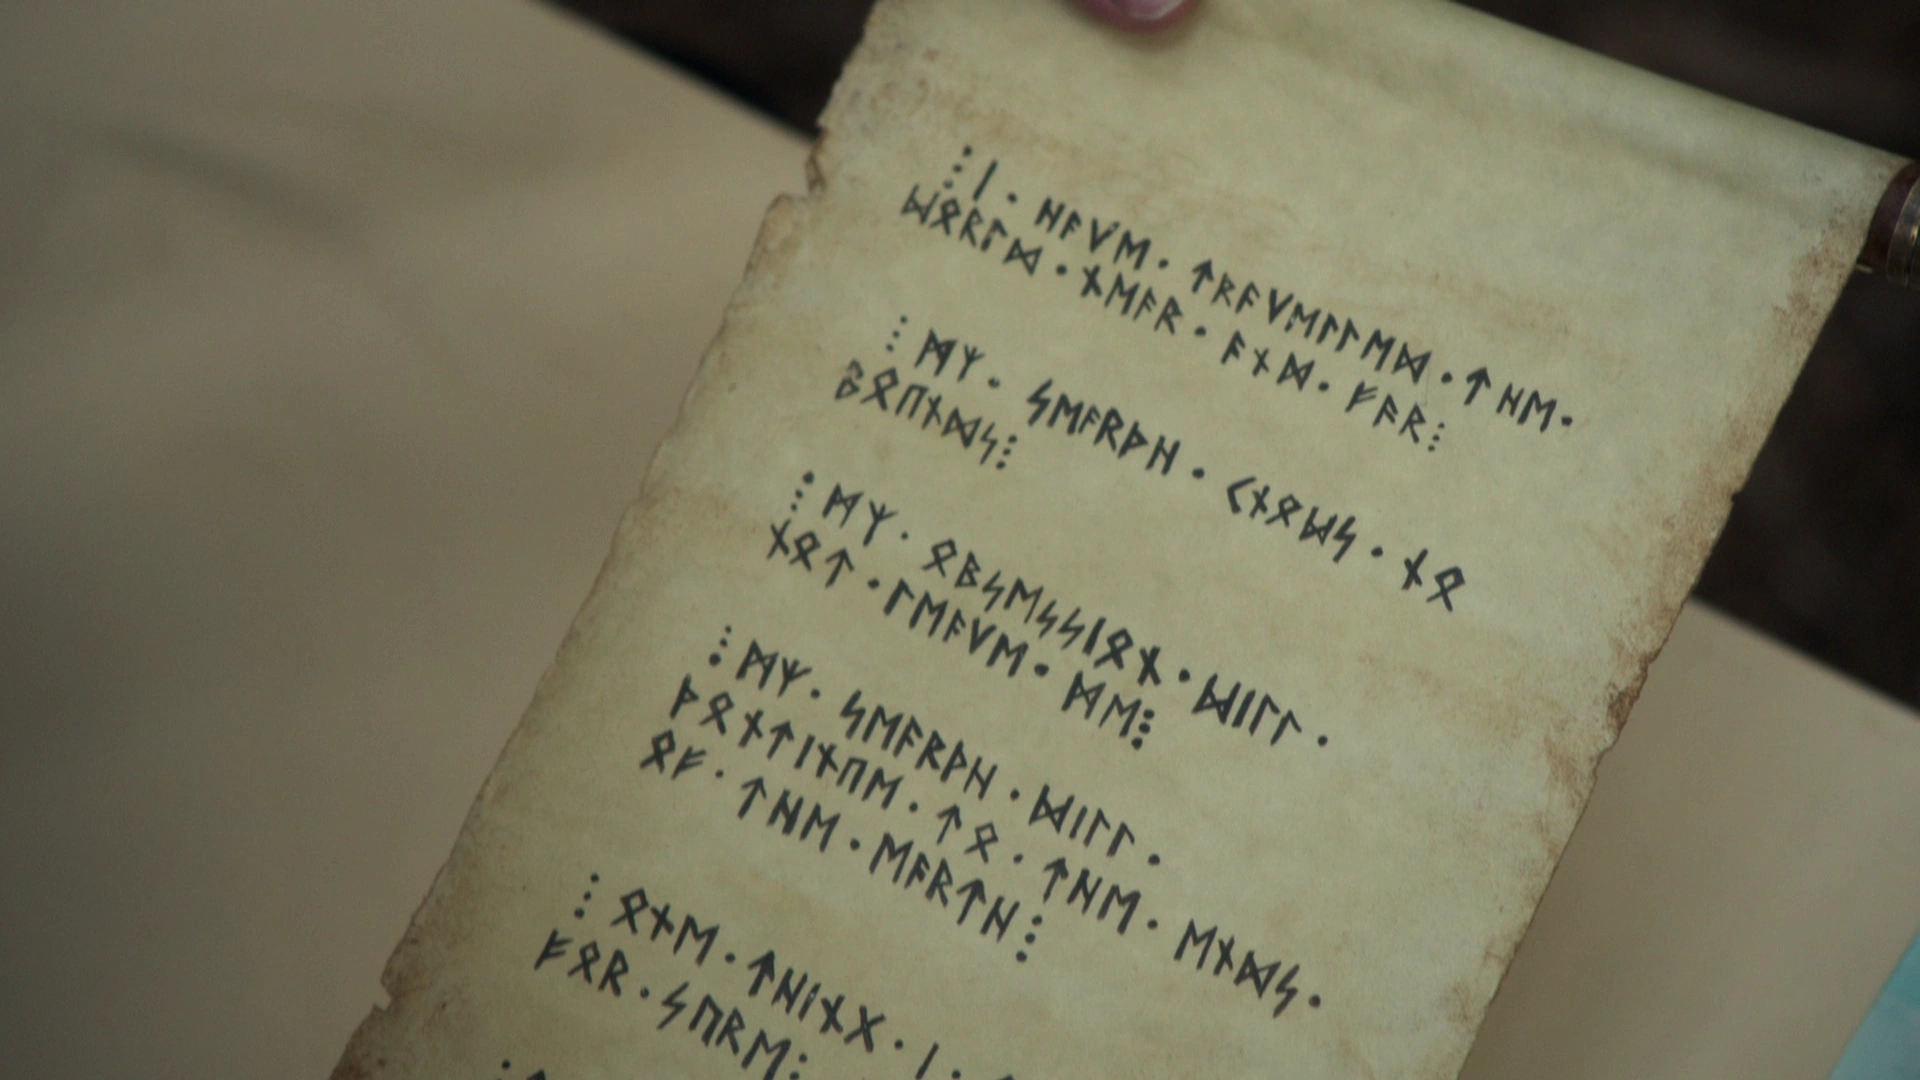 ⁝ ᛁ · ᚺᚨVᛖ · ᛏᚱᚨVᛖᛚᛚᛖᛞ · ᛏᚺᛖ ·
ᚹᛟᚱᛚᛞ · ᚾᛖᚨᚱ · ᚨᚾᛞ · ᚠᚨᚱ ⁝
⁝ ᛗᛉ · ᛋᛖᚨᚱᚦᚺ · ᚲᚾᛟᚹᛋ · ᚾᛟ
ᛒᛟᚢᚾᛞᛋ ⁝
⁝ ᛗᛉ · ᛟᛒᛋᛖᛋᛋᛁᛟᚾ · ᚹᛁᛚᛚ ·
ᚾᛟᛏ · ᛚᛖᚨVᛖ · ᛗᛖ ⁝
⁝ ᛗᛉ · ᛋᛖᚨᚱᚦᚺ · ᚹᛁᛚᛚ ·
ᚦᛟᚾᛏᛁᚾᚢᛖ · ᛏᛟ · ᛏᚺᛖ · ᛖᚾᛞᛋ ·
ᛟᚠ · ᛏᚺᛖ · ᛖᚨᚱᛏᚺ ⁝
⁝ ᛟᚾᛖ · ᛏᚺᛁᚾᚷ · ᛁ ·
ᚠᛟᚱ · ᛋᚢᚱᛖ ⁝